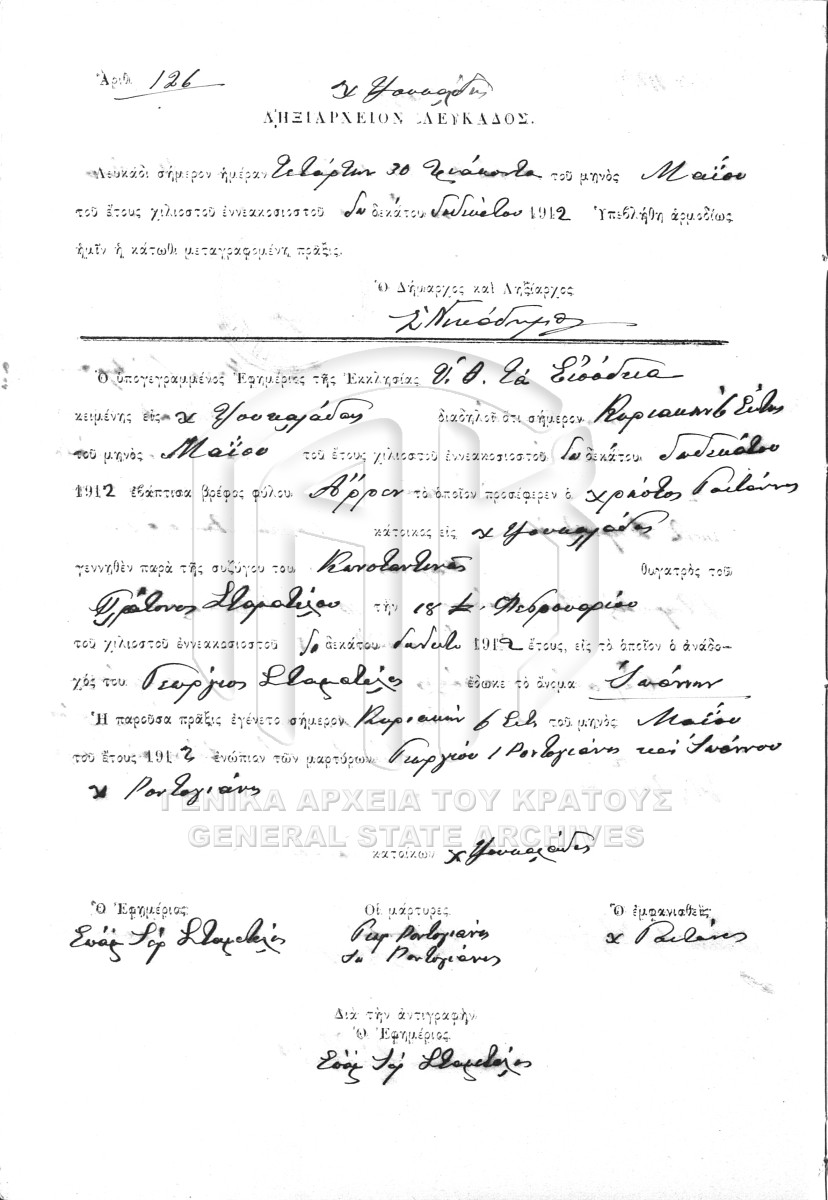 Ἀριθ. 126
χ Τσουκαλάδες
ΛΗΞΙΑΡΧΕΙΟΝ ΛΕΥΚΑΔΟΣ.
Λευκάδι σήμερον ἡμέραν Τετάρτην 30 τριάκοντα τοῦ μηνὸς Μαΐου
τοῦ ἔτους χιλιοστοῦ ἐννεακοσιοστοῦ δεκάτου δωδεκάτου 1912 Ὑπεβλήθη ἁρμοδίως
ἡμῖν ἡ κάτωθι μεταγραφομένη πρᾶξις.
Ὁ Δήμαρχος καὶ Ληξίαρχος
Ὁ ὑπογεγραμμένος Ἐφημέριος τῆς Ἐκκλησίας Ὑ. Θ. τὰ Εἰσόδεια
κειμένης εἰς χ Τσουκαλάδες διαδηλοῖ ὅτι σήμερον Κυριακὴν 6 ἕκτην
τοῦ μηνὸς Μαΐου τοῦ ἔτους χιλιοστοῦ ἐννεακοσιοστοῦ δεκάτου δωδεκάτου
1912 ἐβάπτισα βρέφος φύλου Ἄρρεν τὸ ὁποῖον προσέφερεν ὁ χρῆστος
κάτοικος εἰς χ Τσουκαλάδες
γεννηθὲν παρὰ τῆς συζύγου του Κωνσταντινας θυγατρὸς τοῦ
Πλάτονος Σταματέλου τὴν 18 Φεβρουαρίου
τοῦ χιλιοστοῦ ἐννεακοσιοστοῦ δεκάτου 1912 ἔτους, εἰς τὸ ὁποῖον ὁ ἀνάδο-
χός του Γεώργιος Σταματέλος ἔδωκε τὸ ὄνομα Ἰωάννην
Ἡ παροῦσα πρᾶξις ἐγένετο σήμερον Κυριακὴν 6 τοῦ μηνὸς Μαΐου
τοῦ ἔτους 1912 ἐνώπιον τῶν μαρτύρων Γεωργίου Ροντογιάνης καὶ Ἰωάννου
χ Ροντογιάνης
ΓΕΝΙΚΑ ΑΡΧΕΙΑ ΤΟΥ ΚΡΑΤΟΥΣ
GENERAL STATE ARCHIVES
κατοίκων χ Τσουκαλάδες
Ὁ Ἐφημέριος Οἱ μάρτυρες Ὁ ἐμφανισθεὶς
Σταματέλος Γεωρ Ροντογιάνης
Ἰω Ροντογιάνης
Διὰ τὴν ἀντιγραφὴν
Ὁ Ἐφημέριος
Σταματέλος